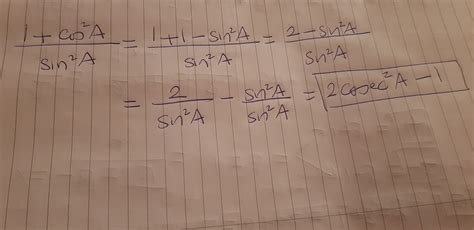 (1 + cos²A)/(sin²A) = (1+1-sin²A)/(sin²A) = (2-sin²A)/(sin²A)
= 2/(sin²A) - (sin²A)/(sin²A) = 2cosec²A-1